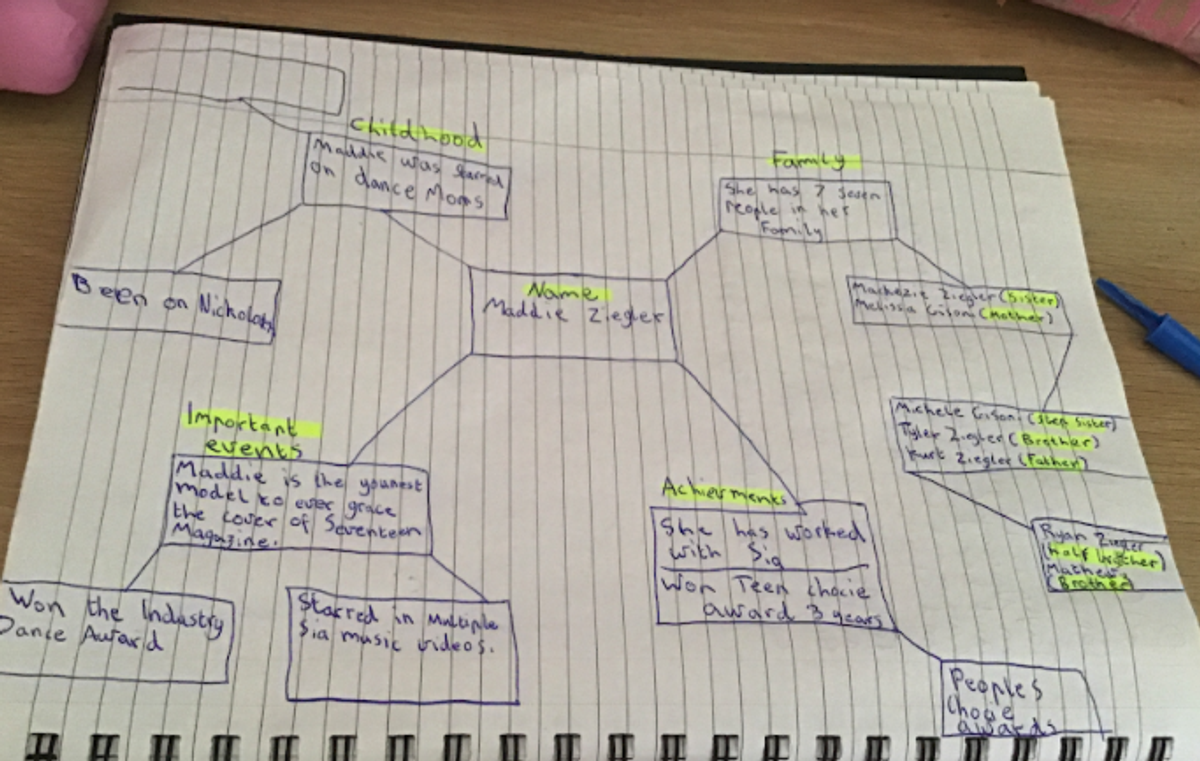 Childhood
Maddie was starred
on dance Moms
Been on Nickolads
Name
Maddie Ziegler
Family
She has 7 seven
People in her
Family
Mackezie Ziegler (Sister)
Melissa Gisoni (Mother)
Michele Gisoni (Step sister)
Tyler Ziegler (Brother)
Kurt Ziegler (Father)
Ryan Ziegler
(Half brother)
Mathew
(Brother)
Important
events
Maddie is the younest
model to ever grace
the cover of Seventeen
Magazine.
Won the Industry
Dance Award
Starred in Multiple
Sia music videos.
Achievments
She has worked
with Sia
Won Teen chocie
award 3 years
Peoples
Choie
awards